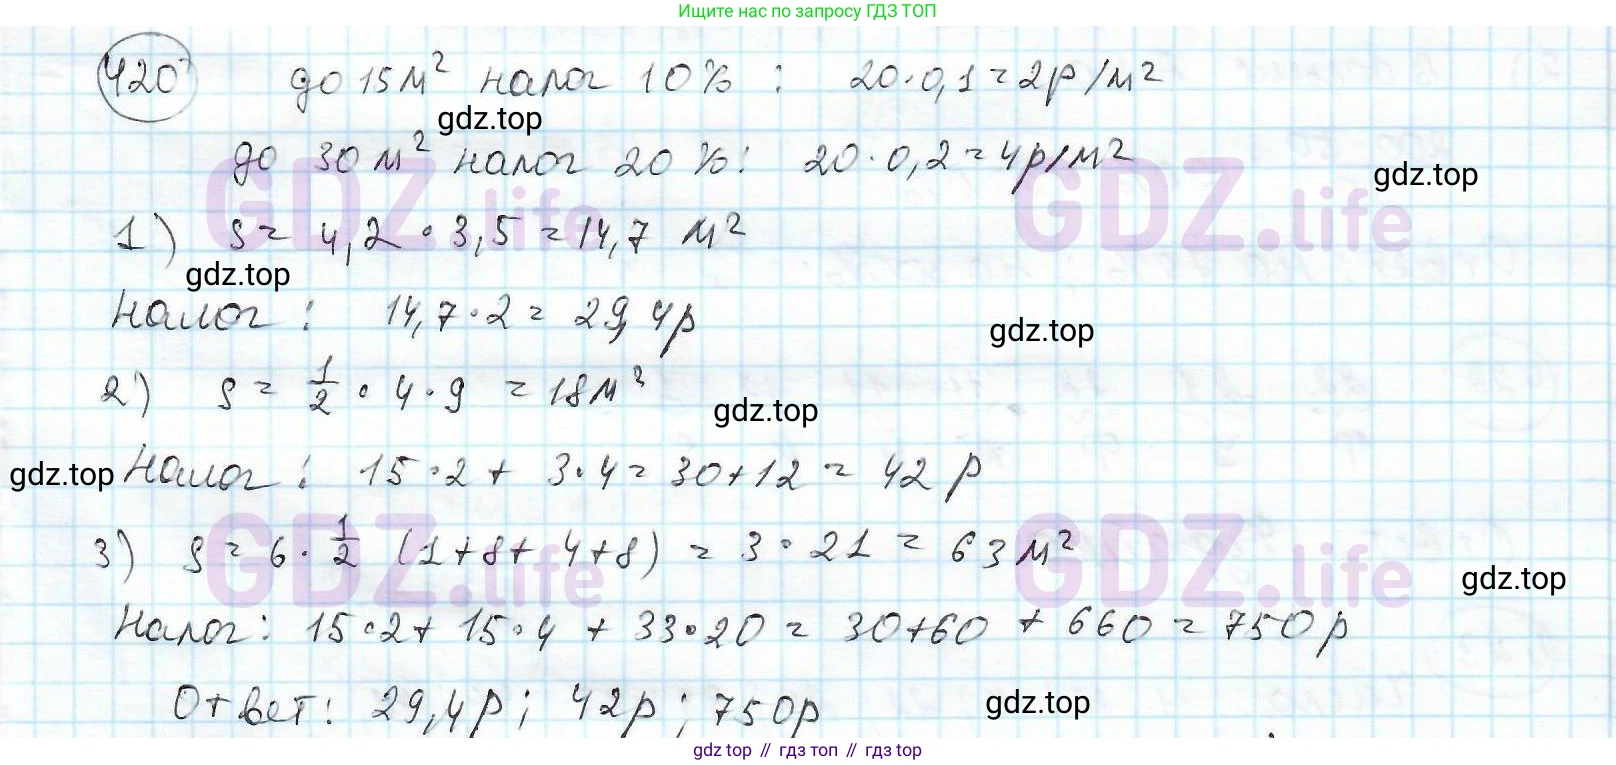 Ищите нас по запросу ГДЗ ТОП
420 до 15 м² налог 10% : 20·0,1=2р/м²
gdz.top
до 30 м² налог 20%: 20·0,2=4р/м²
gdz.top
GDZ.life GDZ.life
1) S= 4,2·3,5=14,7 м²
gdz.top
Налог: 14,7·2= 29,4р
gdz.top
2) S= 1/2 · 4·9 = 18м²
gdz.top
gdz.top Налог: 15·2+ 3·4= 30+12 = 42 р
3) S= 6·1/2 (1+8+4+8) = 3·21 = 63 м²
GDZ.life GDZ.life
gdz.top
Налог: 15·2+ 15·4 + 33·20= 30+60 + 660 = 750р
Ответ: 29,4р; 42р; 750р
gdz.top
gdz top // гдз топ // гдз top